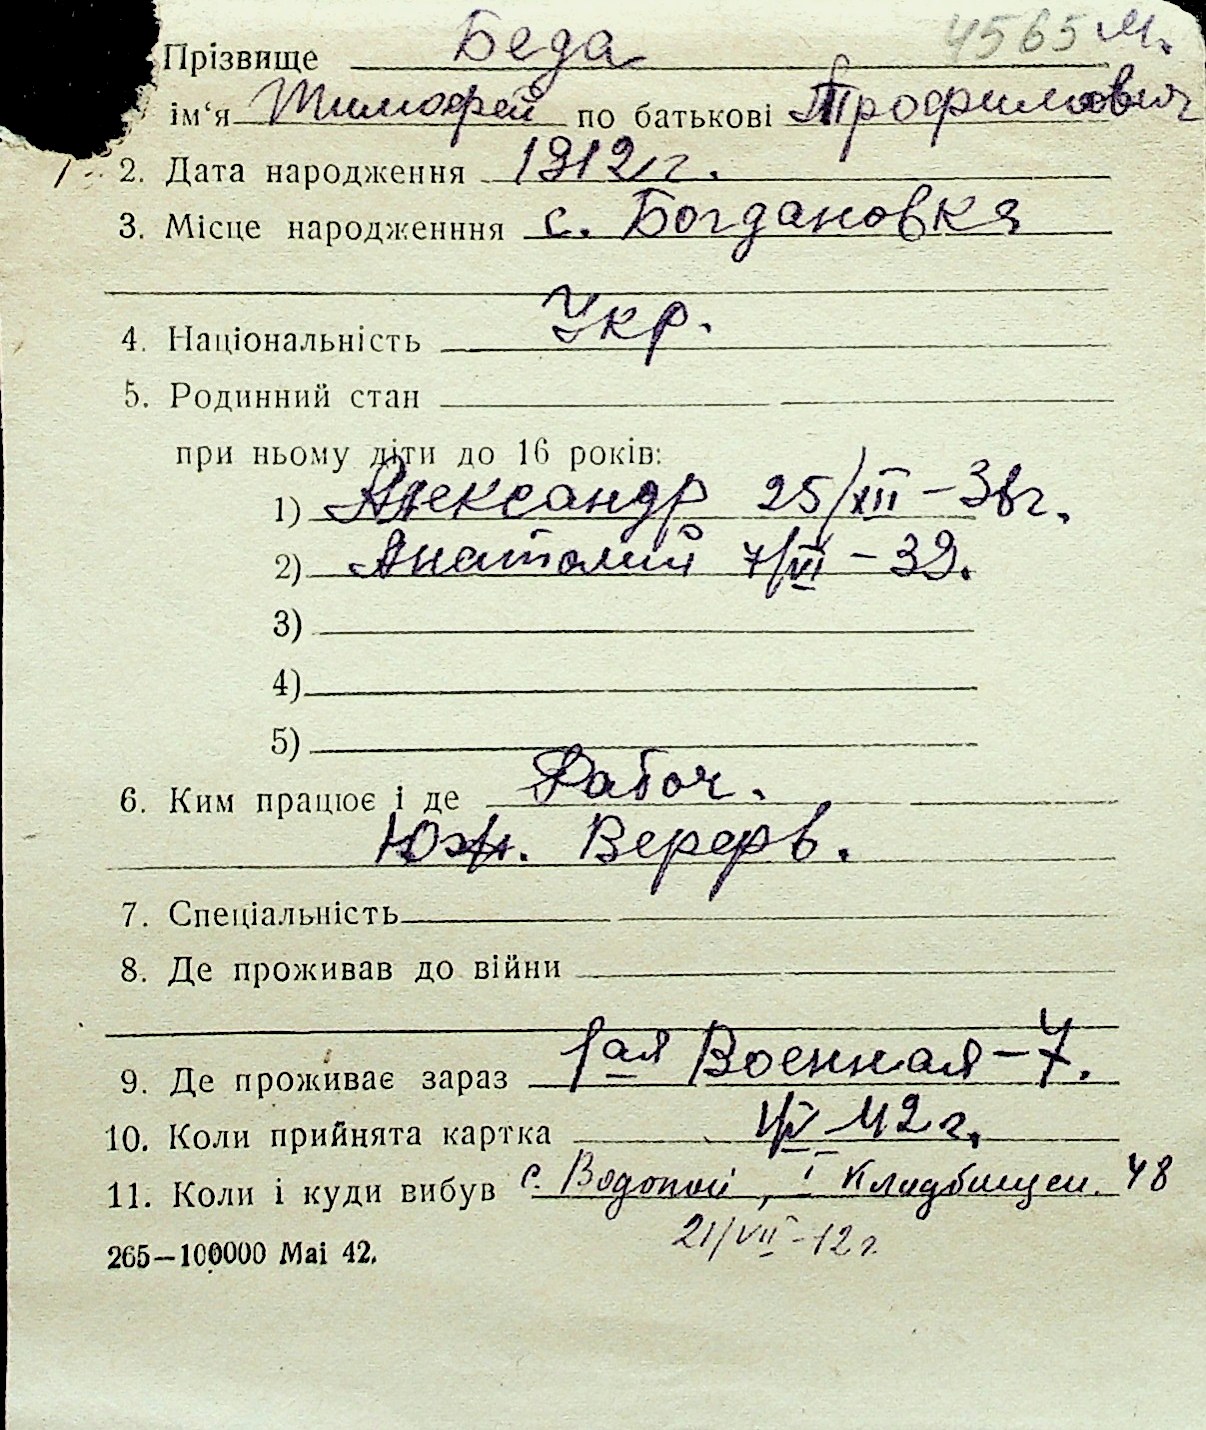 4565 М.
Прізвище Беда
ім‘я Тимофей по батькові Трофимович
2. Дата народження 1912 г.
3. Місце народженння с. Богдановка
4. Національність Укр.
5. Родинний стан
при ньому діти до 16 років:
1) Александр 25/XII – 36г.
2) Анатолий 7/VI – 39.
3)
4)
5)
6. Ким працює і де Рабоч.
Юж. Верфь.
7. Спеціальність
8. Де проживав до війни
9. Де проживає зараз 1ая Военная – 7.
10. Коли прийнята картка 42 г.
11. Коли і куди вибув с. Водопой, I Кладбищен. 48
21/VII – 42 г.
265—100000 Mai 42.